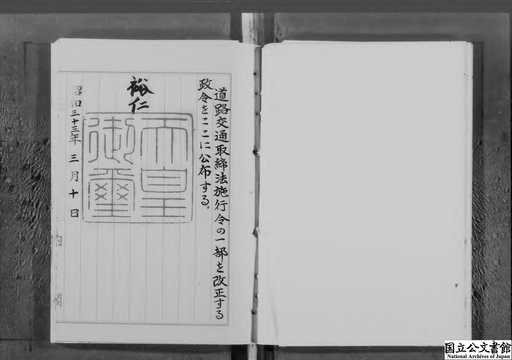 道路交通取締法施行令の一部を改正する
政令をここに公布する。
裕仁
天皇
御璽
昭和三十三年 三月十日
内閣
国立公文書館
National Archives of Japan